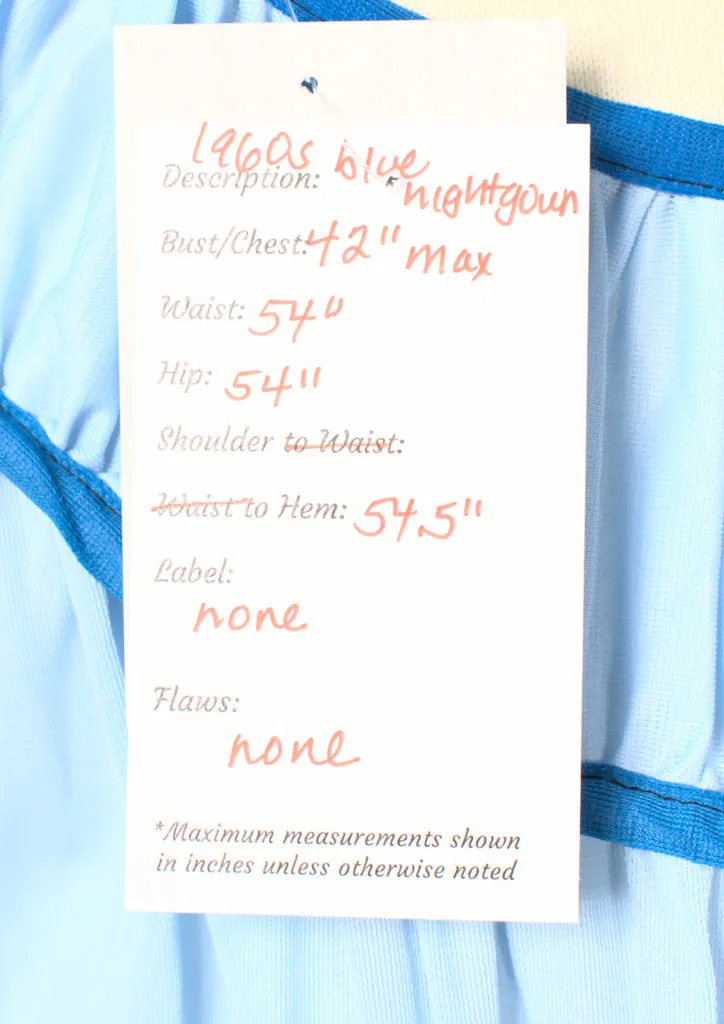 1960s blue nightgown
Description:
Bust/Chest: 42" max
Waist: 54"
Hip: 54"
Shoulder to Waist:
Waist to Hem: 54.5"
Label:
none
Flaws:
none
*Maximum measurements shown
in inches unless otherwise noted